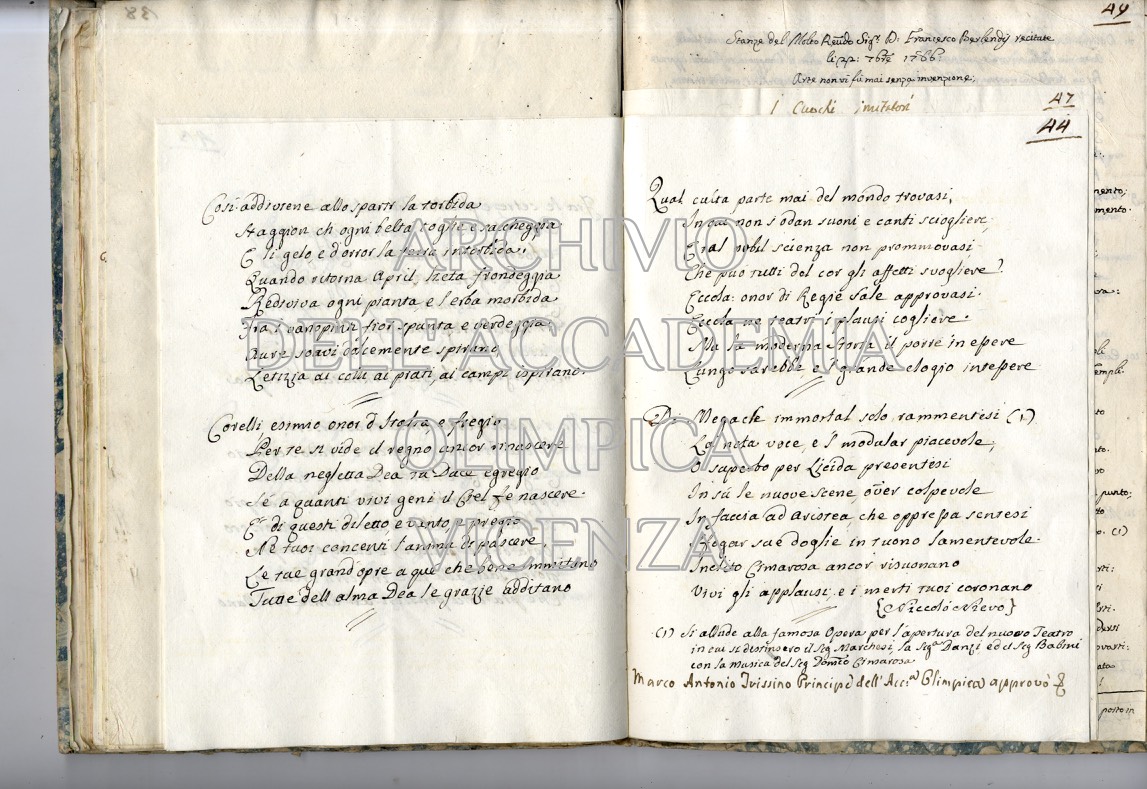 49
Stanze del Molto Revdo Sigr D. Francesco Berlendis recitate
li 22: 7bre 1766
Arte non vi fù mai senza invenzione;
I Cuochi imitatori
47
44
Così addiviene allo spartir la torbida
Staggion ch' ogni beltà toglie e saccheggia
E li gelo, e d'orror la terra intorbida;
Quando ritorna April, lieta frondeggia
Rediviva ogni pianta, e l'erba morbida
Fra i vanopinti fior spunta e verdeggia
Aure soavi dolcemente spirano
Letizia ai colli ai prati, ai campi ispirano.
Corelli esimio onor d'Italia e fregio
Per te si vide il regno ancor rinascere
Della negletta Dea tu Duce egregio
Sè a quanti vivi geni il Ciel fe nascere.
E' di questi diletto e vanto e pregio
Ne tuoi concenti l'anima di pascere
Le tue grand'opre a que che bene immitano
Tutte dell'alma Dea le grazie additano
Qual culta parte mai del mondo trovasi,
In cui non s'odan suoni e canti sciogliere,
E tal nobil scienza non prommovasi
Che può tutti dal cor gli affetti svogliere?
Eccola: onor di Regie Sale approvasi.
Eccola ne teatri i plausi cogliere.
Ma la moderna Storia il porre in essere
Lungo sarebbe, e il grande elogio intessere
Di Megacle immortal solo rammentisi (1)
La nota voce, e 'l modular piacevole,
O saperbo per Licida presentisi
In sù le nuove scene, over colpevole
In faccia ad Aristea, che oppressa sentesi
Pregar sue doglie in tuono lamentevole.
Inclito Cimarosa ancor risuonano
Vivi gli applausi, e i merti tuoi coronano
{Niccolò Nievo}
(1) Si allude alla famosa Opera per l'apertura del nuovo Teatro
in cui si distinsero il Sig Marchesi, la Siga Danzi ed il Sig Babini
con la musica del Sig Domco Cimarosa
Marco Antonio Trissino Principe dell' Acc.a Olimpica approvò
mento;
mento.
punto;
(1)
posto in
ARCHIVIO
DELL'ACCADEMIA
OLIMPICA
VICENZA